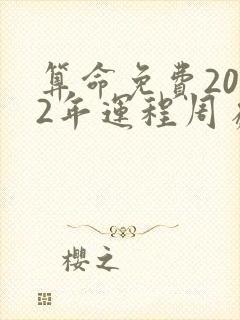 算命免费20
2年运程周
樱之